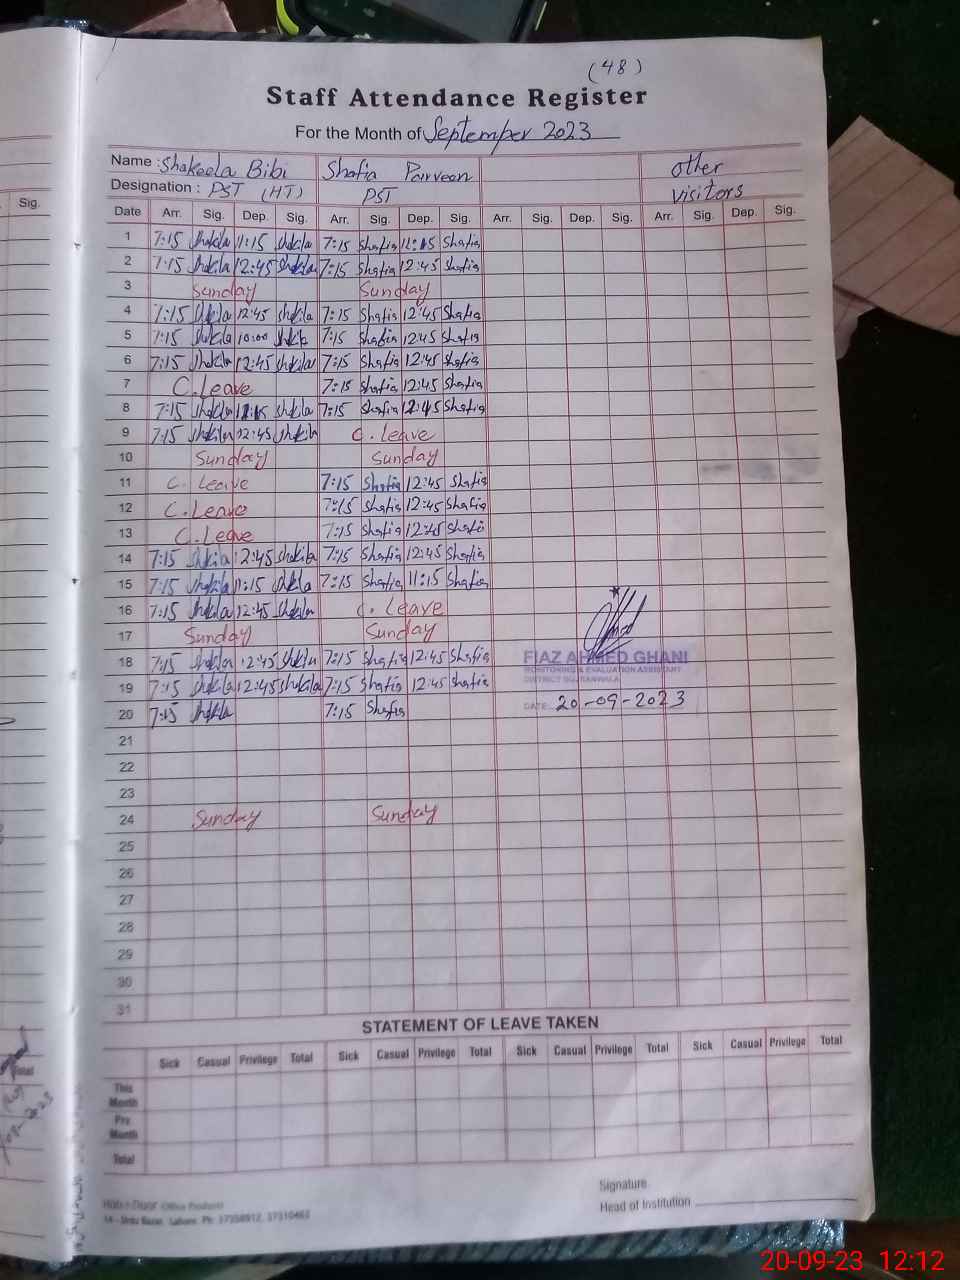 (48)
Staff Attendance Register
For the Month of September 2023
Name : Shakeela Bibi Shafia Parveen other
Designation : PST (HT) PST visitors
Sig.
Date Arr. Sig. Dep. Sig. Arr. Sig. Dep. Sig. Arr. Sig. Dep. Sig. Arr. Sig. Dep. Sig.
1 7:15 Shakila 11:15 Shakila 7:15 Shafia 11:15 Shafia
2 7:15 Shakila 12:45 Shakila 7:15 Shafia 12:45 Shafia
3 Sunday Sunday
4 7:15 Shakila 12:45 Shakila 7:15 Shafia 12:45 Shafia
5 7:15 Shakila 10:00 Shakila 7:15 Shafia 12:45 Shafia
6 7:15 Shakila 12:45 Shakila 7:15 Shafia 12:45 Shafia
7 C.Leave 7:15 Shafia 12:45 Shafia
8 7:15 Shakila Shakila 7:15 Shafia Shafia
9 7:15 Shakila 12:45 Shakila C. Leave
10 Sunday Sunday
11 C. Leave 7:15 Shafia 12:45 Shafia
12 C. Leave 7:15 Shafia 12:45 Shafia
13 C. Leave 7:15 Shafia 12:45 Shafia
14 7:15 Shakila 12:45 Shakila 7:15 Shafia 12:45 Shafia
15 7:15 Shakila 11:15 Shakila 7:15 Shafia 11:15 Shafia
16 7:15 Shakila 12:45 Shakila C. Leave
17 Sunday Sunday
18 7:15 Shakila 12:45 Shakila 7:15 Shafia 12:45 Shafia
FIAZ AHMED GHANI
MONITORING & EVALUATION ASSISTANT
DISTRICT GUJRANWALA
19 7:15 Shakila 12:45 Shakila 7:15 Shafia 12:45 Shafia
DATE: 20-09-2023
20 7:15 Shakila 7:15 Shafia
21
22
23
24 Sunday Sunday
25
26
27
28
29
30
31
STATEMENT OF LEAVE TAKEN
Sick Casual Privilege Total Sick Casual Privilege Total Sick Casual Privilege Total Sick Casual Privilege Total
This Month
Pre Month
Total
Signature
Head of Institution
14 - Urdu Bazar, Lahore. Ph: 37358912, 37310463
20-09-23 12:12